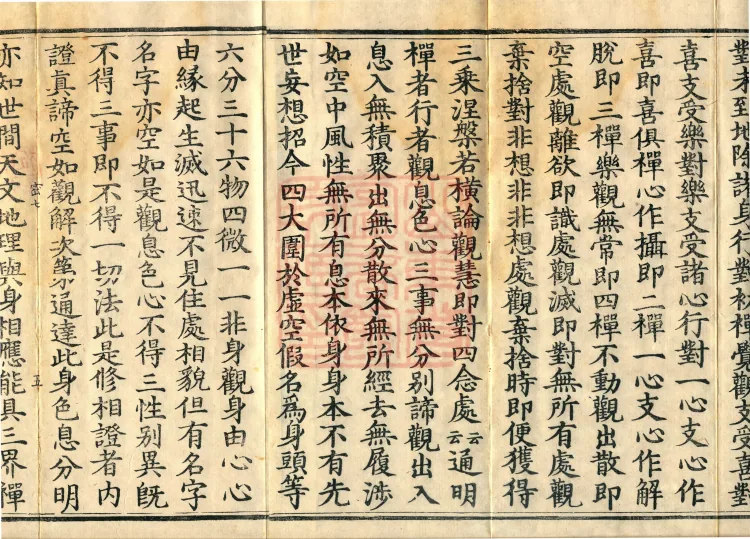 對未到地除諸身行對初禪覺觀支受喜對
喜支受樂對樂支受諸心行對一心支心作
喜即喜俱禪心作攝即二禪一心支心作解
脫即三禪樂觀無常即四禪不動觀出散即
空處觀離欲即識處觀滅即對無所有處觀
棄捨對非想非非想處觀棄捨時即便獲得
三乘涅槃若橫論觀慧即對四念處云云通明
禪者行者觀息色心三事無分別諦觀出入
息入無積聚出無分散來無所經去無履涉
如空中風性無所有息本依身身本不有先
世妄想招今四大圍於虛空假名爲身頭等
六分三十六物四微一一非身觀身由心心
由緣起生滅迅速不見住處相貌但有名字
名字亦空如是觀息色心不得三性別異旣
不得三事即不得一切法此是修相證者內
證眞諦空如觀解次第通達此身色息分明
亦知世間天文地理與身相應能具三界禪